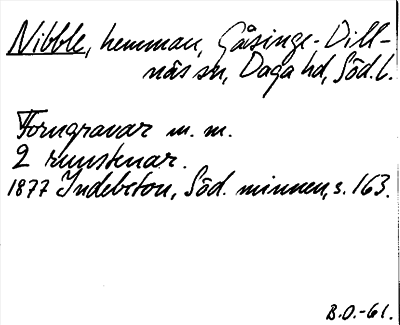 Nibble, hemman, Gåsinge-Dill-
näs sn, Daga hd, Söd.l.
Forngravar m.m.
2 runstenar.
1877 Indebetou, Söd. minnen, s. 163.
B.O.-61.